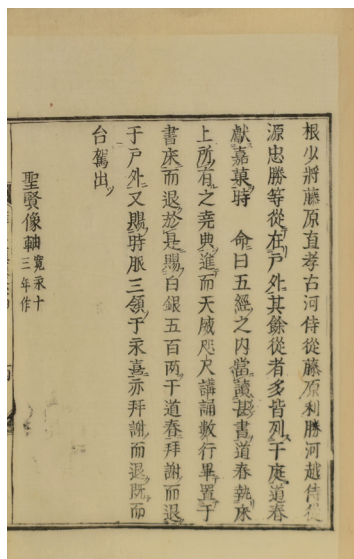 根少將藤原直孝古河侍從藤原利勝河越侍從
源忠勝等從在戶外其餘從者多皆列于庭道春
獻嘉菓時 命曰五經之内當書道春執床
上所有之堯典進而天威咫尺講誦數行畢置于
書床而退於是賜白銀五百两于道春拜謝而退
于戶外又賜時服三領于永喜亦拜謝而退既而
台駕出
聖賢像軸 寬永十
三年作